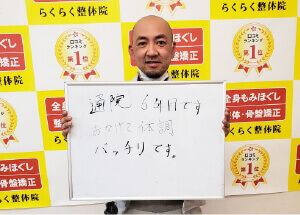 らくらく整体院
口コミ
ランキング
第1位
全身もみほぐし
整体・骨盤矯正
らくらく整体院
通院 6年目です
おかげで体調
バッチリです。
口コミ
ランキング
第1位
全身もみほぐし
体・骨盤矯正
らくらく整体院
全身もみほぐし
整体・骨盤矯正
らくらく整体院
口コミ
ランキング
第1位